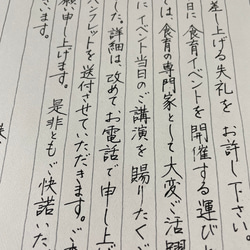 差上げる失礼をお許し下さい
日に食育イベントを開催する運び
では、食育の専門家として大変ご活躍
にイベント当日のご講演を賜りたく
した。詳細は、改めてお電話で申し上げ
ンフレットを送付させていただきます。
願い申し上げます。是非ともご快諾いた
います。